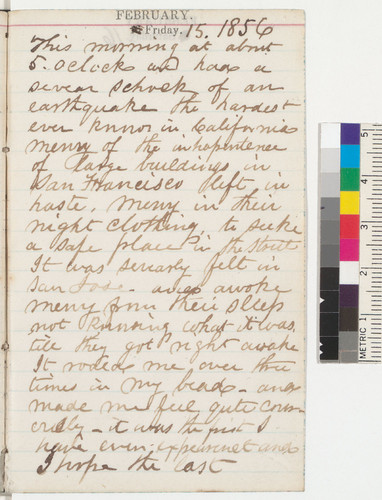 FEBRUARY.
Friday, 15. 1856
This morning at about
5. oclock we had a
sevear schock of an
earthquake the hardest
ever knnon in California
menny of the
of large buildings in
San Francisco left in
haste. menny in their
night clothing, to seeke
a safe place in the
It was sevearly felt in
San Jose - and awoke
menny from their sleep
not knnning what it was
till they got right awake
It me over three
times in my bead - and
made me feel quite
- it was the first I
have ever and
I hope the last
METRIC 1 2 3 4 5